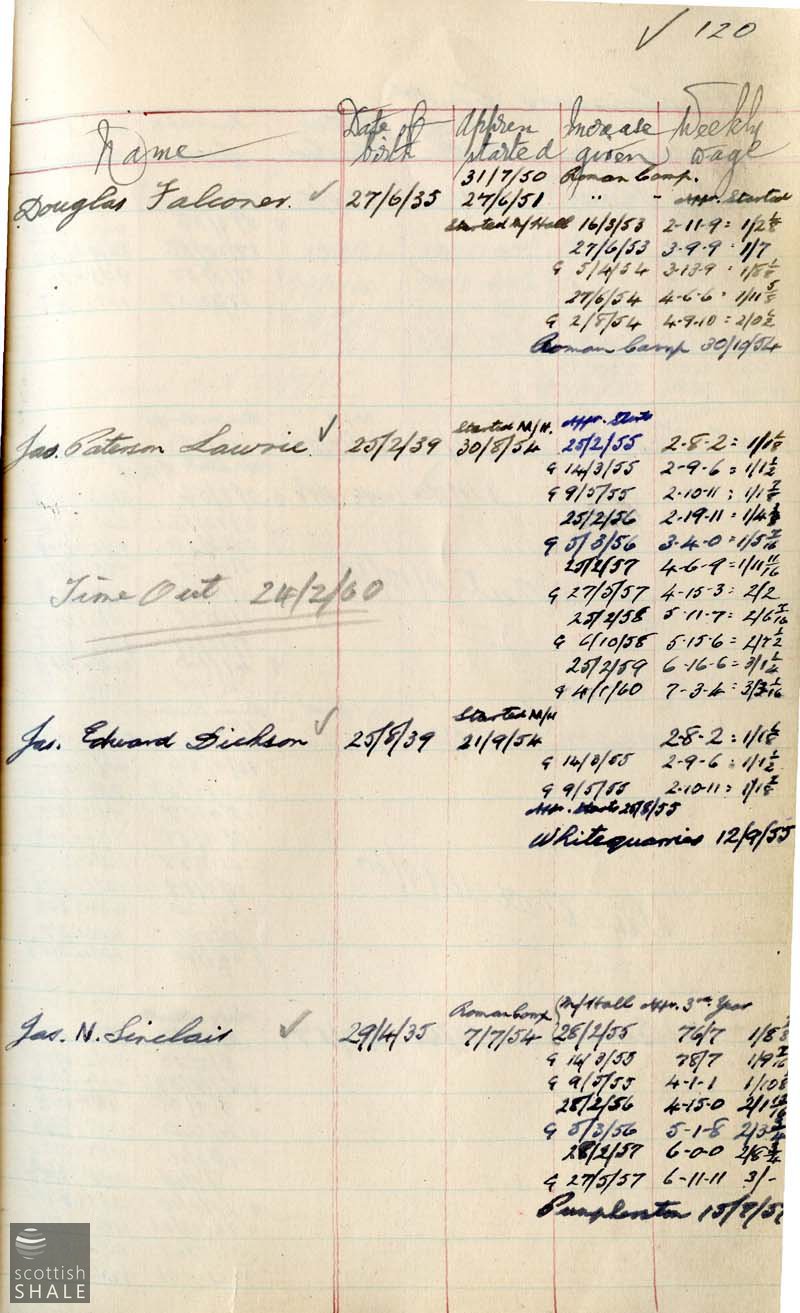 ✓ 120
Name Date of birth Appren started Increase given Weekly wage
31/7/50 Roman Camp.
Douglas Falconer. ✓ 27/6/35 27/6/51 " " Appr. Started
Started M/Hall 16/3/53 2-11-9 = 1/2
27/6/53 3-9-9 = 1/7
G 5/4/54 3-13-9 = 1/8
27/6/54 4-6-6 = 1/11 5/8
G 2/8/54 4-9-10 = 2/0 1/2
Roman Camp 30/10/54
Started M/H. Appr. Starts
Jas. Paterson Lawrie. ✓ 25/2/39 30/8/54 25/2/55 2-8-2 = 1/1 1/8
G 14/3/55 2-9-6 = 1/1 1/2
G 9/5/55 2-10-11 = 1/1 7/8
25/2/56 2-19-11 = 1/4
G 5/3/56 3-4-0 = 1/5
25/2/57 4-6-9 = 1/11 11/16
Time Out 24/2/60
G 27/5/57 4-15-3 = 2/2
25/2/58 5-11-7 = 2/6 7/16
G 6/10/58 5-15-6 = 2/7 1/2
25/2/59 6-16-6 = 3/1 1/4
G 4/1/60 7-3-4 = 3/3
Started M/H
Jas. Edward Dickson ✓ 25/8/39 21/9/54 2-8-2 = 1/1 1/8
G 14/3/55 2-9-6 = 1/1 1/2
G 9/5/55 2-10-11 = 1/1 7/8
Appr. Starts 25/8/55
Whitequarries 12/9/55
Roman Camp M/Hall Appr. 3rd Year
Jas. N. Sinclair ✓ 29/4/35 7/7/54 28/2/55 76/7 1/8
G 14/3/55 78/7 1/9
G 9/5/55 4-1-1 1/10
28/2/56 4-15-0 2/1
G 5/3/56 5-1-8 2/3
28/2/57 6-0-0 2/8 3/4
G 27/5/57 6-11-11 3/-
Pumpherston
scottish
SHALE